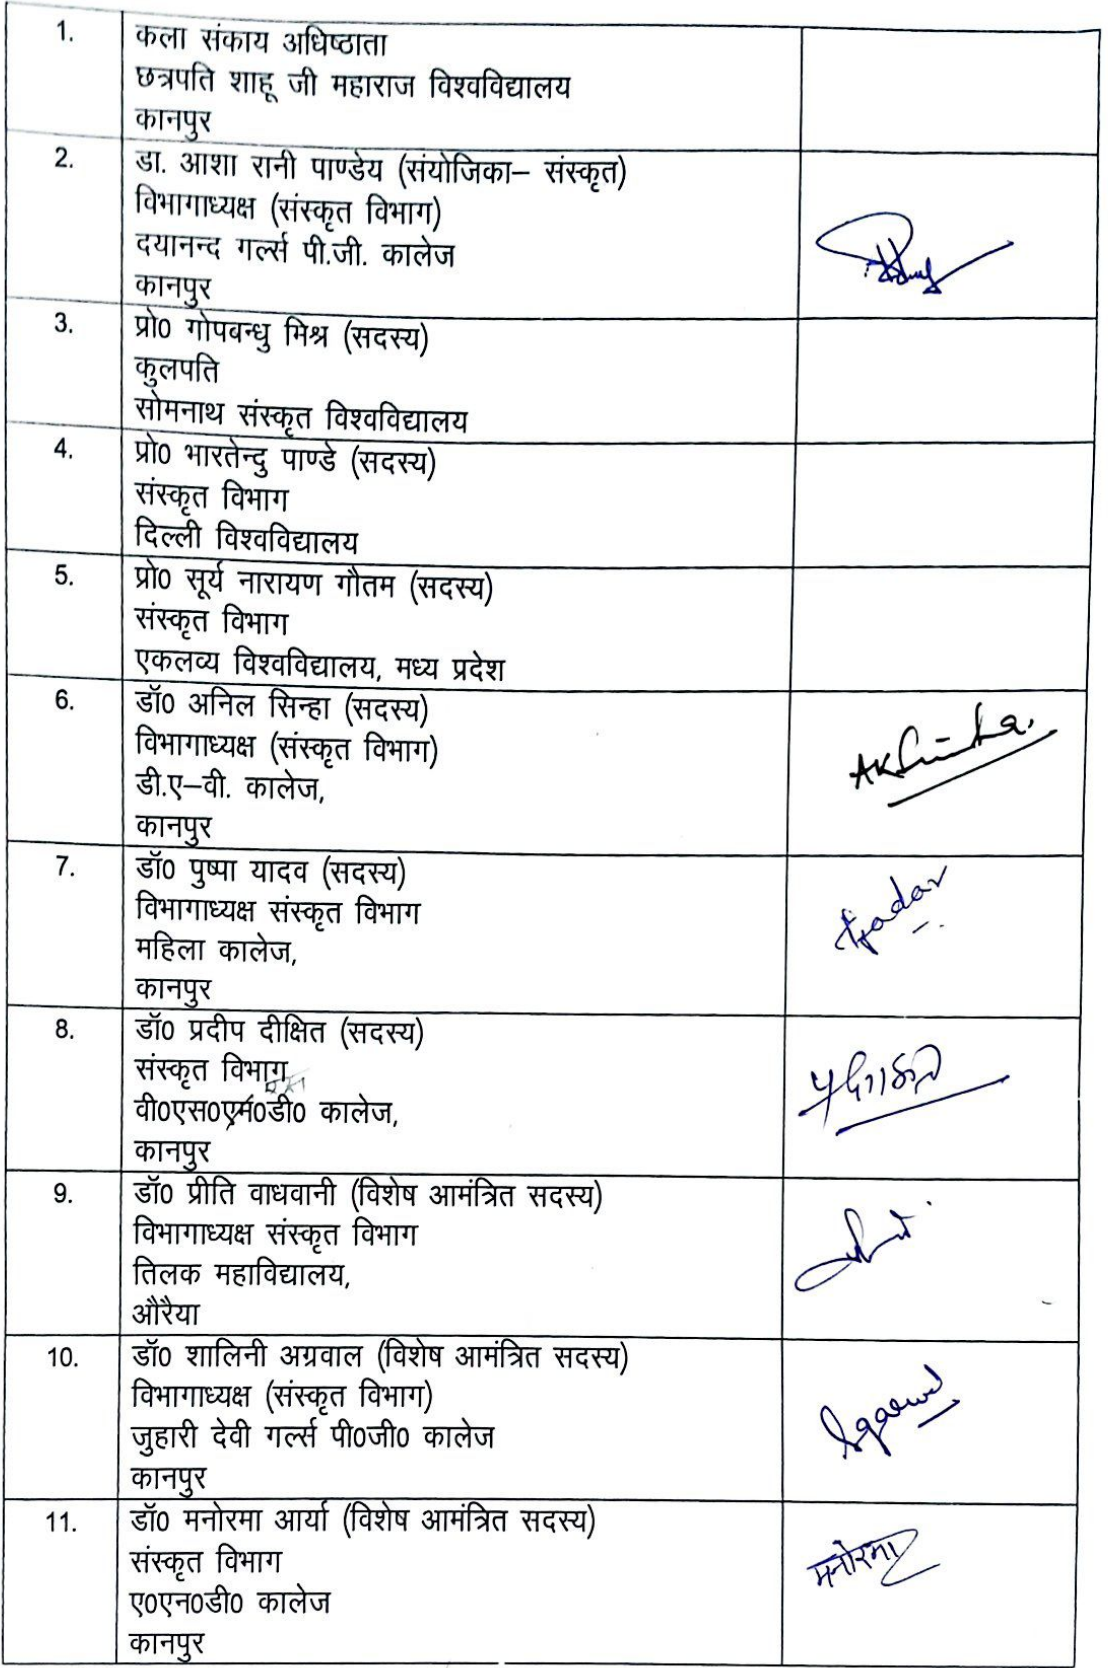 1.
कला संकाय अधिष्ठाता
छत्रपति शाहू जी महाराज विश्वविद्यालय
कानपुर
2.
डा. आशा रानी पाण्डेय (संयोजिका– संस्कृत)
विभागाध्यक्ष (संस्कृत विभाग)
दयानन्द गर्ल्स पी.जी. कालेज
कानपुर
3.
प्रो0 गोपबन्धु मिश्र (सदस्य)
कुलपति
सोमनाथ संस्कृत विश्वविद्यालय
4.
प्रो0 भारतेन्दु पाण्डे (सदस्य)
संस्कृत विभाग
दिल्ली विश्वविद्यालय
5.
प्रो0 सूर्य नारायण गौतम (सदस्य)
संस्कृत विभाग
एकलव्य विश्वविद्यालय, मध्य प्रदेश
6.
डॉ0 अनिल सिन्हा (सदस्य)
विभागाध्यक्ष (संस्कृत विभाग)
डी.ए–वी. कालेज,
कानपुर
AKSinha.
7.
डॉ0 पुष्पा यादव (सदस्य)
विभागाध्यक्ष संस्कृत विभाग
महिला कालेज,
कानपुर
Yadav
8.
डॉ0 प्रदीप दीक्षित (सदस्य)
संस्कृत विभाग
वी0एस0एम0डी0 कालेज,
कानपुर
9.
डॉ0 प्रीति वाधवानी (विशेष आमंत्रित सदस्य)
विभागाध्यक्ष संस्कृत विभाग
तिलक महाविद्यालय,
औरैया
10.
डॉ0 शालिनी अग्रवाल (विशेष आमंत्रित सदस्य)
विभागाध्यक्ष (संस्कृत विभाग)
जुहारी देवी गर्ल्स पी0जी0 कालेज
कानपुर
11.
डॉ0 मनोरमा आर्या (विशेष आमंत्रित सदस्य)
संस्कृत विभाग
ए0एन0डी0 कालेज
कानपुर
मनोरमा